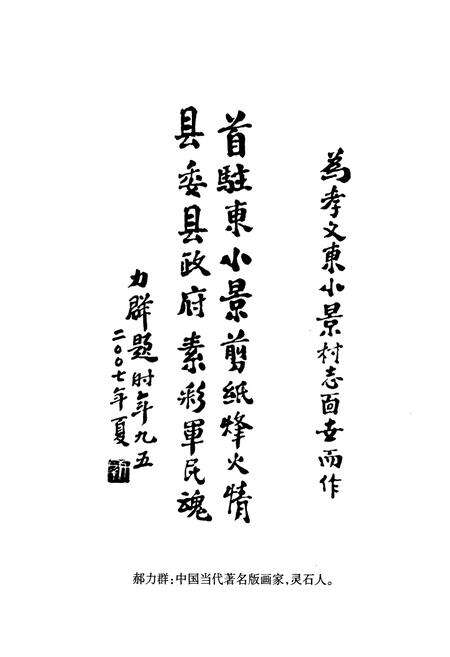 为孝文東小景村志面世而作
首駐東小景剪紙烽火情
县委县政府素彩軍民魂
力群题时年九五
二〇〇七年夏
郝力群:中国当代著名版画家,灵石人。